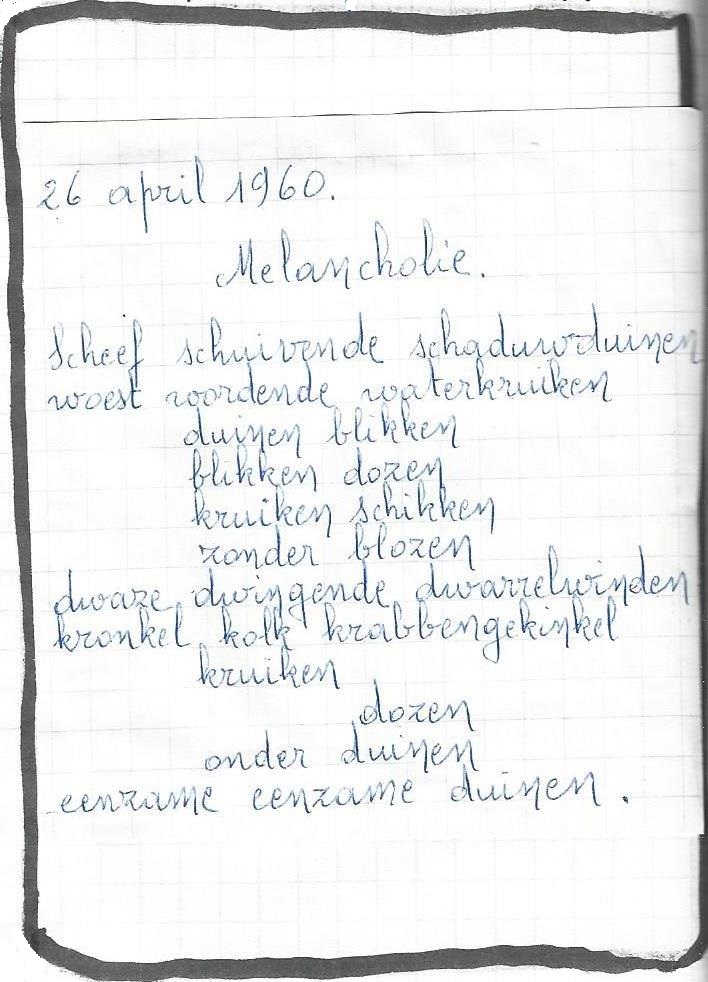 26 april 1960.
Melancholie.
Scheef schuivende schaduwduinen
woest woordende waterkruiken
duinen blikken
blikken dozen
kruiken schikken
zonder blozen
dwaze dwingende dwarrelwinden
kronkel kolk krabbengekinkel
kruiken
dozen
onder duinen
eenzame eenzame duinen.